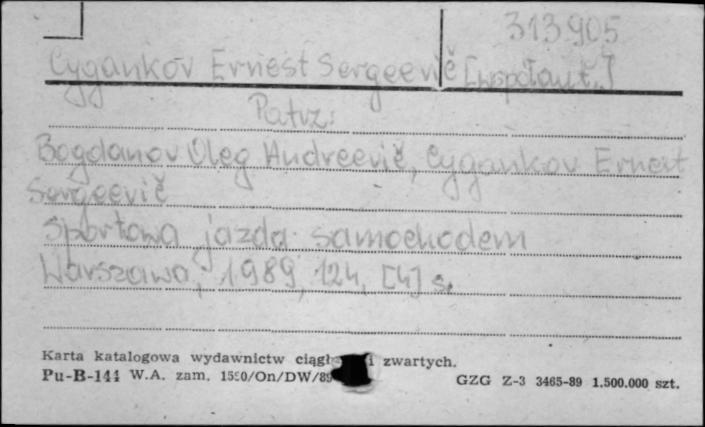 313905
Cygankov Ernest Sergeevič [współaut.]
Patrz:
Bogdanov Oleg Andreevič, Cygankov Ernest
Sergeevič
Sportowa jazda samochodem
Warszawa, 1989, 124, [4] s.
Karta katalogowa wydawnictw i zwartych.
Pu-B-144 W.A. zam. 1550/On/DW/89 GZG Z-3 3465-89 1.500.000 szt.